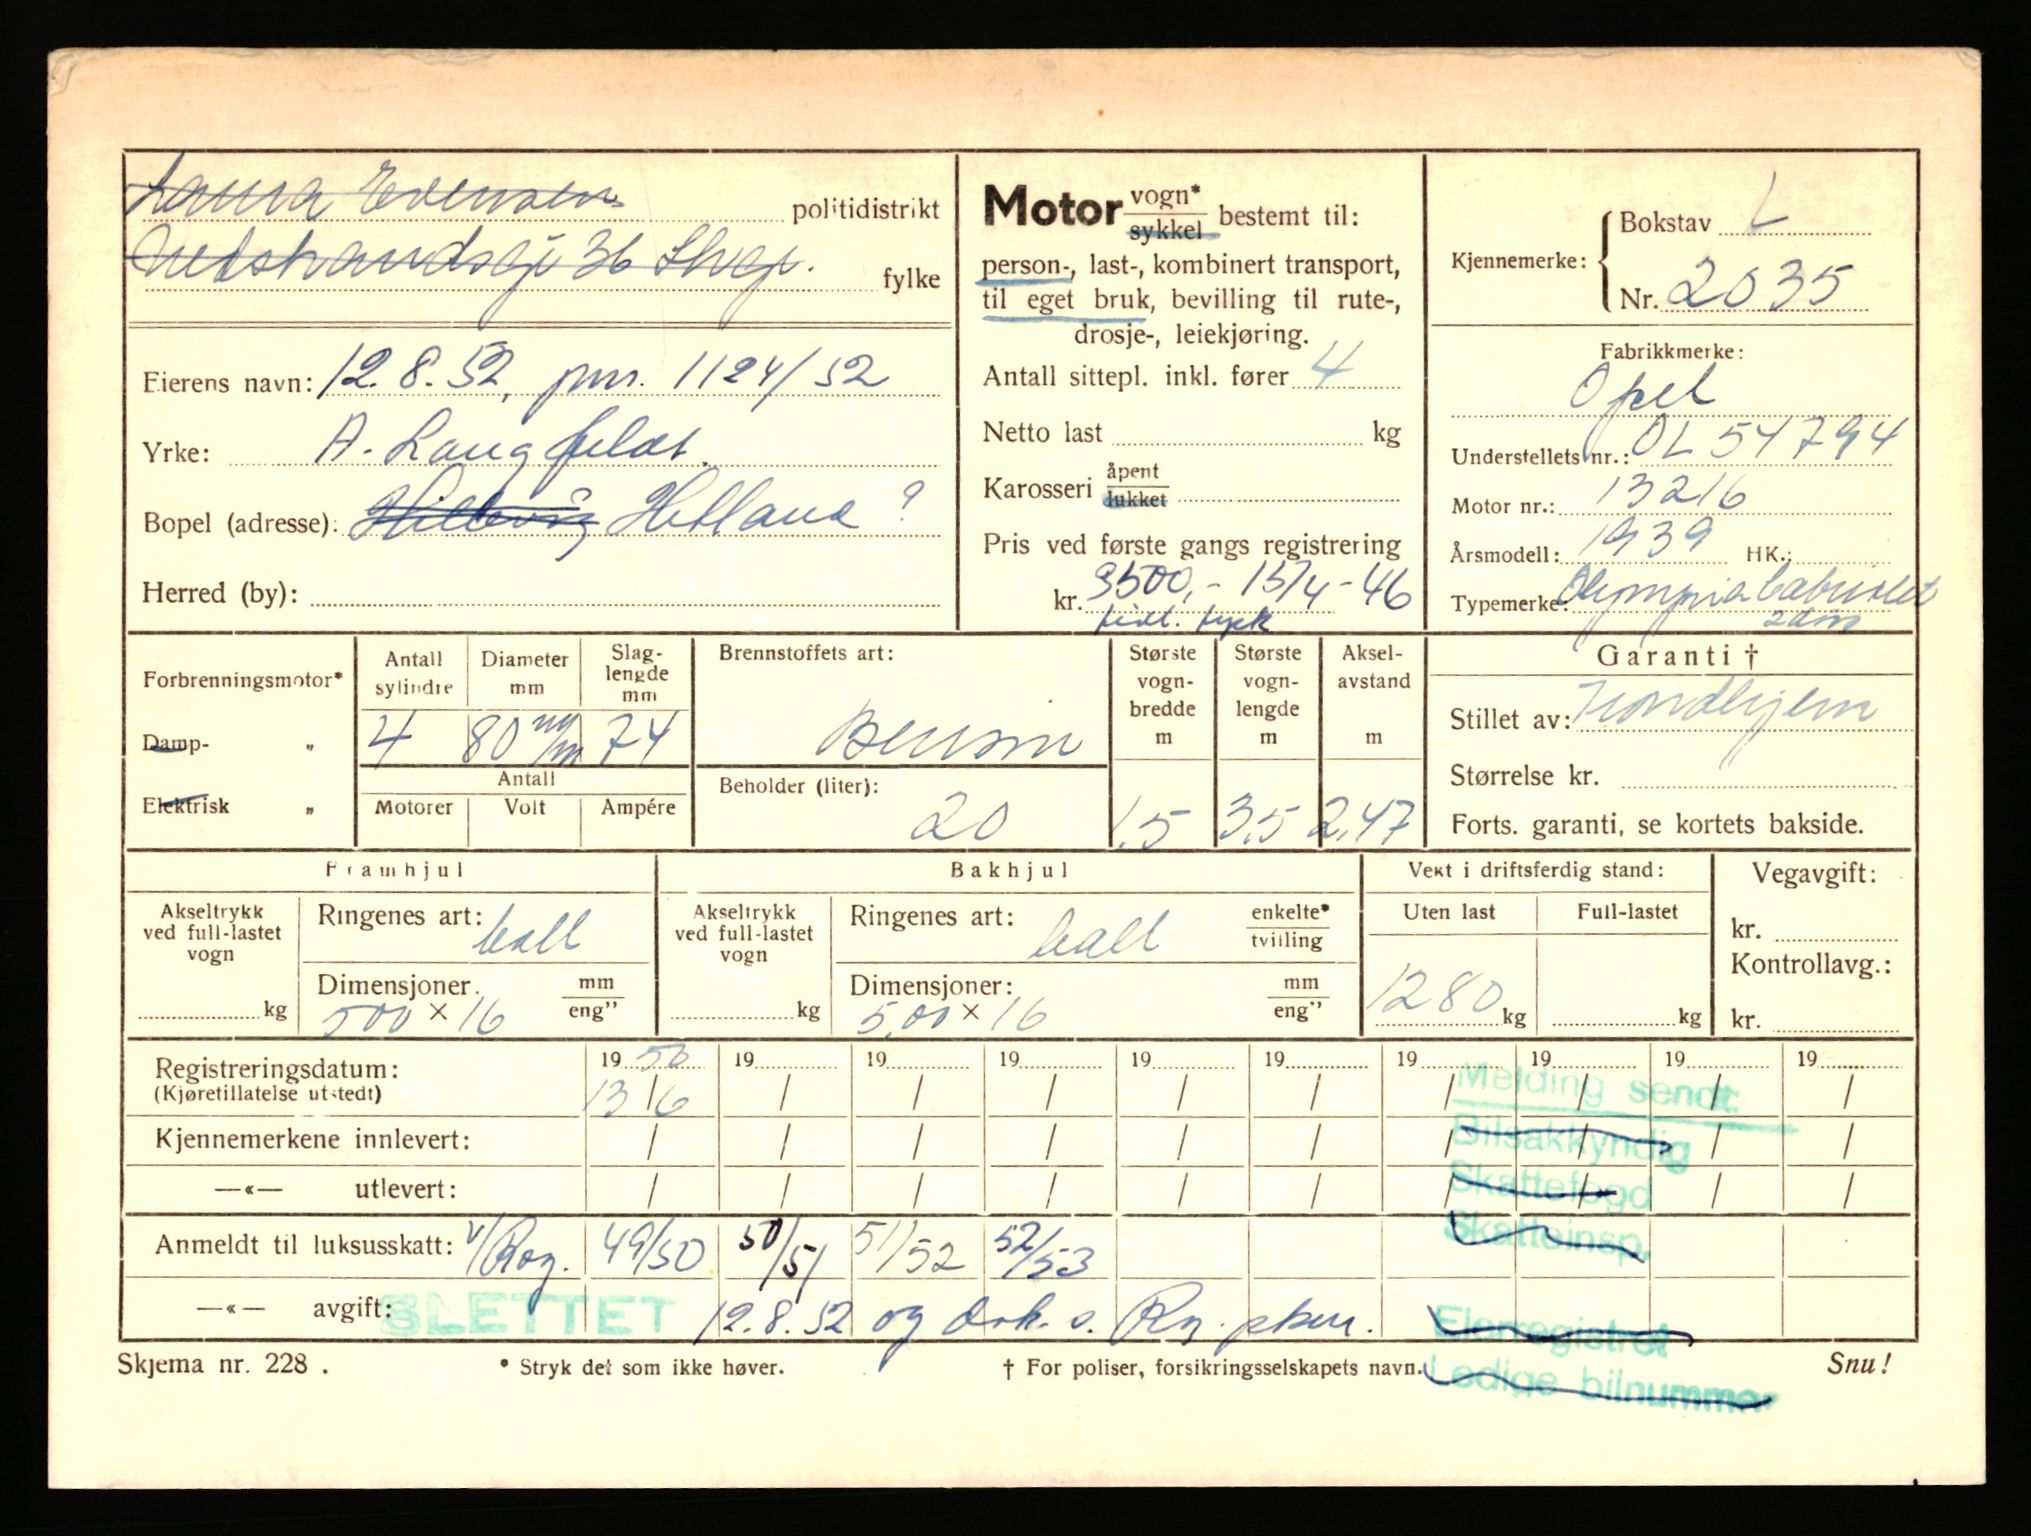 Laura Evensen politidistrikt
Nedstrandsgt 36 Stvgr. fylke
Eierens navn: 12.8.52, pnr. 1124/52
Yrke: A. Langfeldt.
Bopel (adresse): Hillevåg Hetland ?
Herred (by):
Motor vogn* sykkel bestemt til:
person-, last-, kombinert transport,
til eget bruk, bevilling til rute-,
drosje-, leiekjøring.
Antall sittepl. inkl. fører 4
Netto last kg
Karosseri åpent lukket
Pris ved første gangs registrering
kr. 9500,- 15/4-46
Kjennemerke: Bokstav L
Nr. 2035
Fabrikkmerke:
Opel
Understellets nr.: OL 54794
Motor nr.: 13216
Årsmodell: 1939 HK.:
Typemerke: Olympia Cabriolet
2 dørs
Forbrenningsmotor*
Damp- „
Elektrisk „
Antall sylindre Diameter mm Slag-lengde mm
4 80 m/m 74
Antall
Motorer Volt Ampére
Brennstoffets art:
Bensin
Beholder (liter):
20
Største vogn-bredde m
1.5
Største vogn-lengde m
3,5
Aksel-avstand m
2,47
Garanti †
Stillet av: Trondhjem
Størrelse kr.
Forts. garanti, se kortets bakside.
Framhjul
Akseltrykk ved full-lastet vogn
kg
Ringenes art: ball
Dimensjoner. mm
500 × 16 eng”
Bakhjul
Akseltrykk ved full-lastet vogn
kg
Ringenes art: ball enkelte* tvilling
Dimensjoner: mm
5,00 × 16 eng”
Vekt i driftsferdig stand:
Uten last Full-lastet
1280 kg kg
Vegavgift:
kr.
Kontrollavg.:
kr.
Registreringsdatum: 19 50 19 19 19 19 19 19 19 19 19
(Kjøretillatelse utstedt) 13/6 / / / / / / / / /
Kjennemerkene innlevert: / / / / / / / / / /
—«— utlevert: / / / / / / / / / /
Anmeldt til luksusskatt: v/Rog. 49/50 50/51 51/52 52/53
—«— avgift: SLETTET 12.8.52 og
Melding sendt:
Bilsakkyndig
Skattefogd
Skatteinsp.
Eierregistret
Ledige bilnummer
Skjema nr. 228 . * Stryk det som ikke høver. † For poliser, forsikringsselskapets navn. Snu!